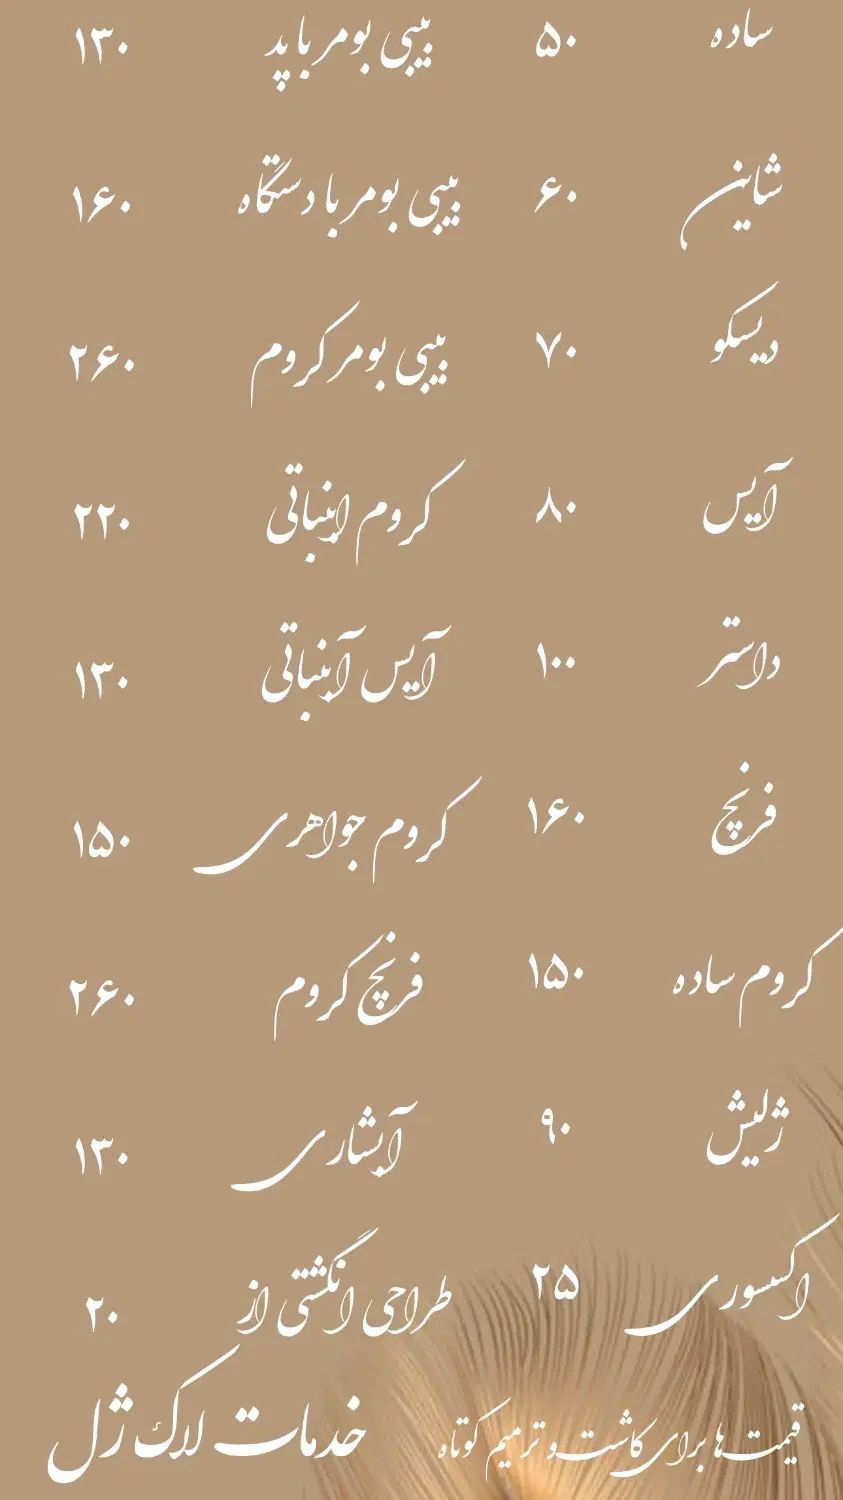 ساده ۵۰ بیبی بومر با پد ۱۳۰
شاین ۶۰ بیبی بومر با دستگاه ۱۶۰
دیسکو ۷۰ بیبی بومر کروم ۲۶۰
آیس ۸۰ کروم ابنباتی ۲۲۰
داستر ۱۰۰ آیس آبنباتی ۱۳۰
فرنچ ۱۶۰ کروم جواهری ۱۵۰
کروم ساده ۱۵۰ فرنچ کروم ۲۶۰
ژلیش ۹۰ آبشاری ۱۳۰
اکسسوری ۲۵ طراحی انگشتی از ۲۰
قیمت ها برای کاشت و ترمیم کوتاه خدمات لاک ژل